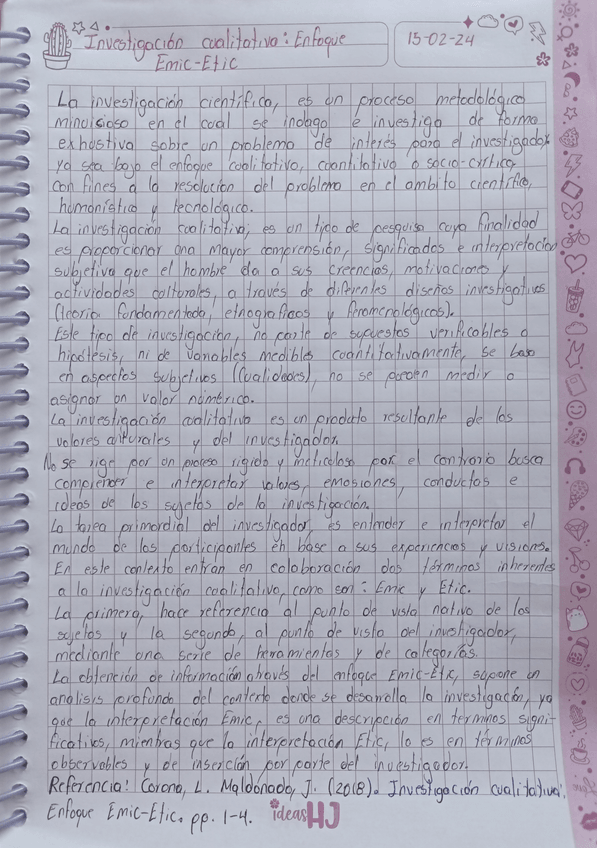 Investigación cualitativa: Enfoque
Emic-Etic
15-02-24
La investigación científica, es un proceso metodológico
minuisioso en el cual se indaga e investiga de forma
exhaustiva sobre un problema de interés para el investigador
ya sea bajo el enfoque cualitativo, cuantitativo o socio-crítico
con fines a la resolución del problema en el ámbito científico,
humanístico y tecnológico.
La investigación cualitativa, es un tipo de pesquisa cuya finalidad
es proporcionar una mayor comprensión, significados e interpretación
subjetiva que el hombre da a sus creencias, motivaciones y
actividades culturales, a través de diferentes diseños investigativos
(teoría fundamentada, etnográficos y fenomenológicos).
Este tipo de investigación, no parte de supuestos verificables o
hipótesis, ni de variables medibles cuantitativamente, se basa
en aspectos subjetivos (Cualidades), no se pueden medir o
asignar un valor numérico.
La investigación cualitativa es un producto resultante de los
valores culturales y del investigador.
No se rige por un proceso rígido y meticuloso por el contrario busca
comprender e interpretar valores, emosiones, conductas e
ideas de los sujetos de la investigación.
La tarea primordial del investigador, es entender e interpretar el
mundo de los participantes en base a sus experiencias y visiones.
En este contexto entran en colaboración dos términos inherentes
a la investigación cualitativa, como son: Emic y Etic.
La primera, hace referencia al punto de vista nativo de los
sujetos y la segunda, al punto de vista del investigador,
mediante una serie de herramientas y de categorías.
La obtención de información através del enfoque Emic-Etic, supone un
análisis profundo del contexto donde se desarrolla la investigación, ya
que la interpretación Emic, es una descripción en términos signi-
ficativos, mientras que la interpretación Etic, lo es en términos
observables y de inserción por parte del investigador.
Referencia: Corona, L. Maldonado, J. (2018). Investigación cualitativa:
Enfoque Emic-Etic. pp. 1-4.
ideas HJ